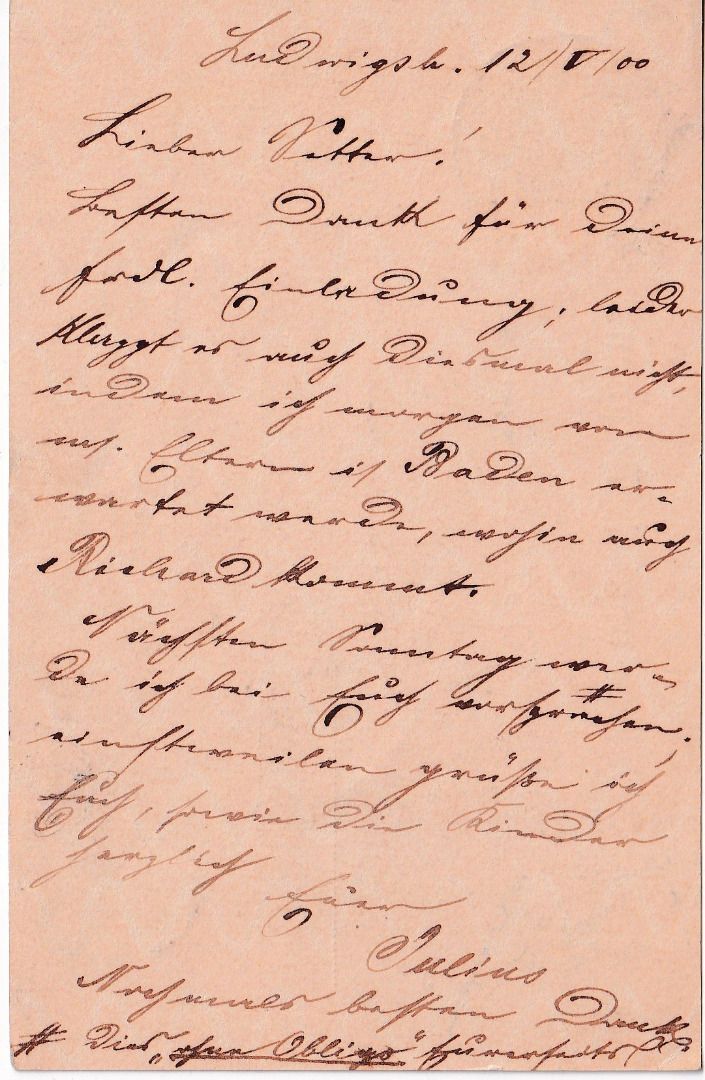 Ludwigsh. 12/V/00
Lieber Vetter!
Besten Dank für Deine
frdl. Einladung, leider
klappt es auch diesmal nicht,
indem ich morgen von
ms. Eltern i/ Baden er-
wartet werde, wohin auch
Richard kommt.
Nächsten Sonntag wer-
de ich bei Euch vorsprechen,
einstweilen grüße ich
Euch, sowie die Kinder
herzlich
Euer
Julius
Nochmals besten Dank
# Dies „ohne Obligo“ Eurerseits